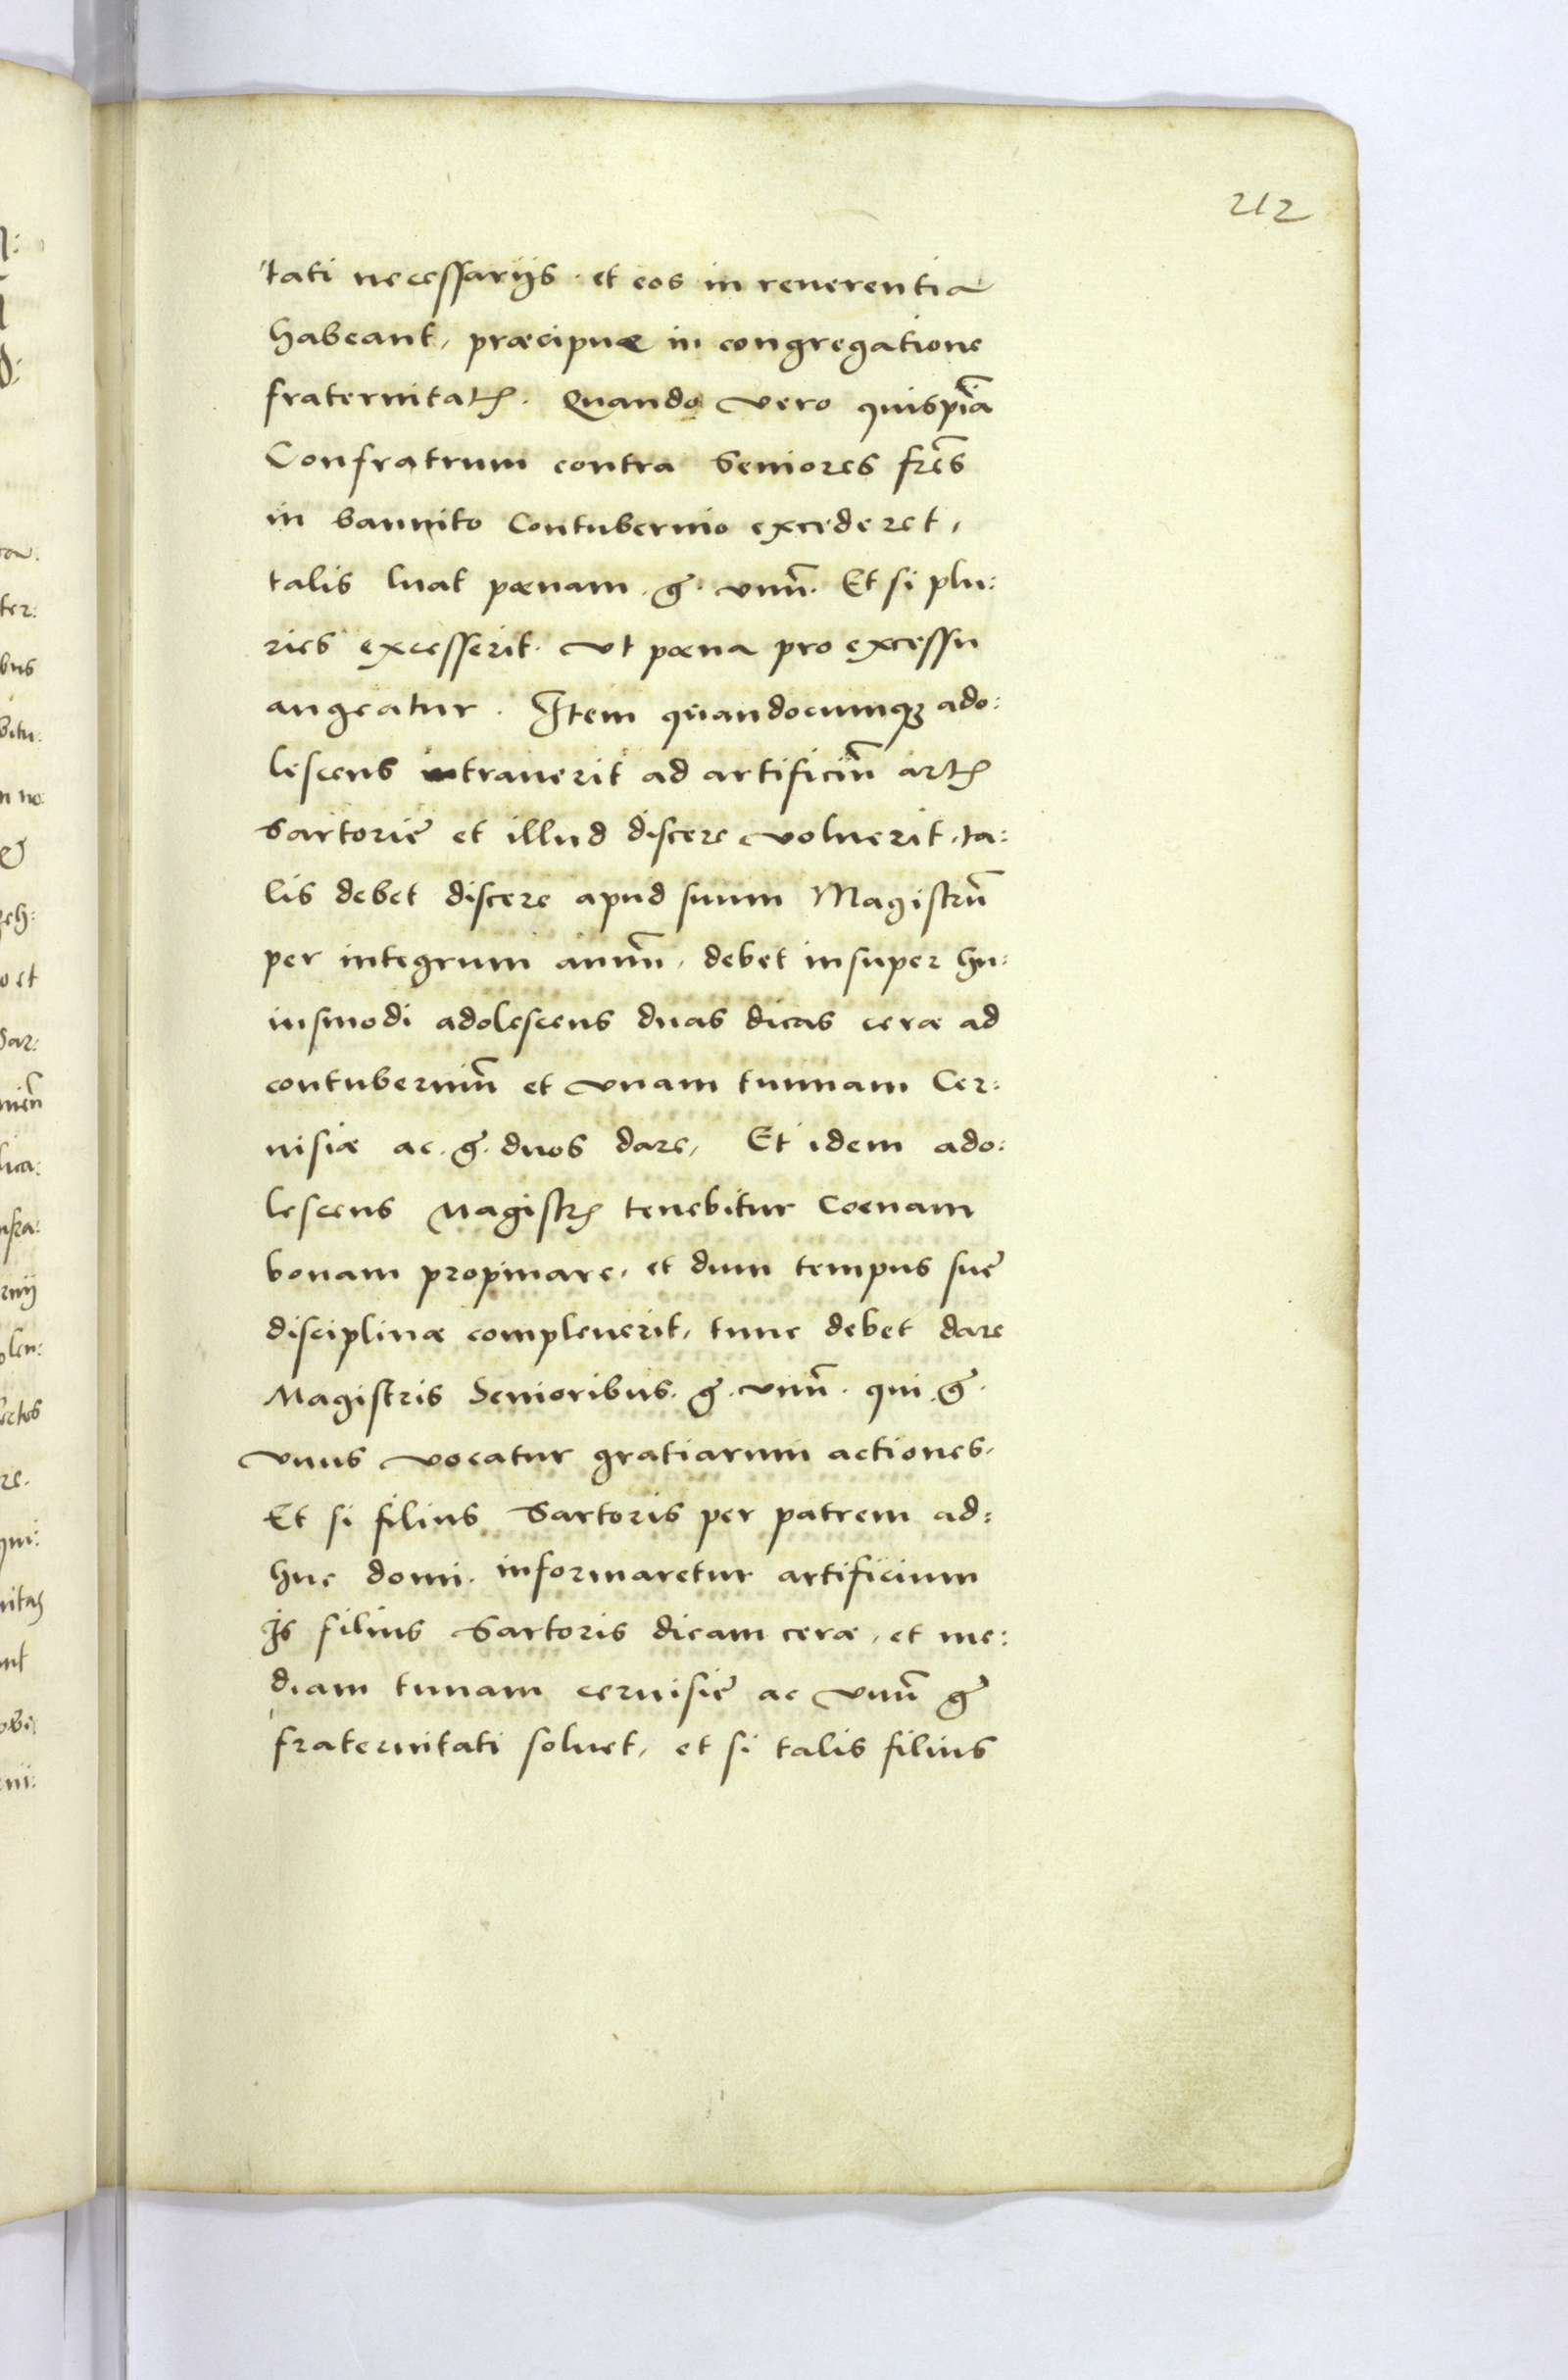 212
tati necessarijs. et eos in reuerentia
habeant, præcipuæ in congregatione
fraternitatꝭ. Quando vero quispiā
Confratrum contra Seniores frēs
in bannito Contubernio excederet,
talis luat pœnam. g̃. vnū̃. Et si plu:
ries excesserit. vt pœna pro excessu
augeatur. Item quandocumqꝫ ado:
lescens intrauerit ad artificiū artꝭ
Sartorie᷎ et illud discere voluerit, ta:
lis debet discere apud suum Magistrū
per integrum annū, debet insuper hu:
iusmodi adolescens duas dicas ceræ ad
contuberniū et vnam tunnam Cer:
uisiæ ac. g̃. duos dare, Et idem ado:
lescens Magistrꝭ tenebitur Coenam
bonam propinare, et dum tempus sue᷎
disciplinæ compleuerit, tunc debet dare
Magistris Senioribus. g̃. vnū. qui. g̃.
vnus vocatur gratiarum actiones.
Et si filius Sartoris per patrem ad:
huc domi. informaretur artificium
Is filius Sartoris dicam ceræ, et me:
diam tunam ceruisie᷎ ac vnū g̃
fraternitati soluet, et si talis filius